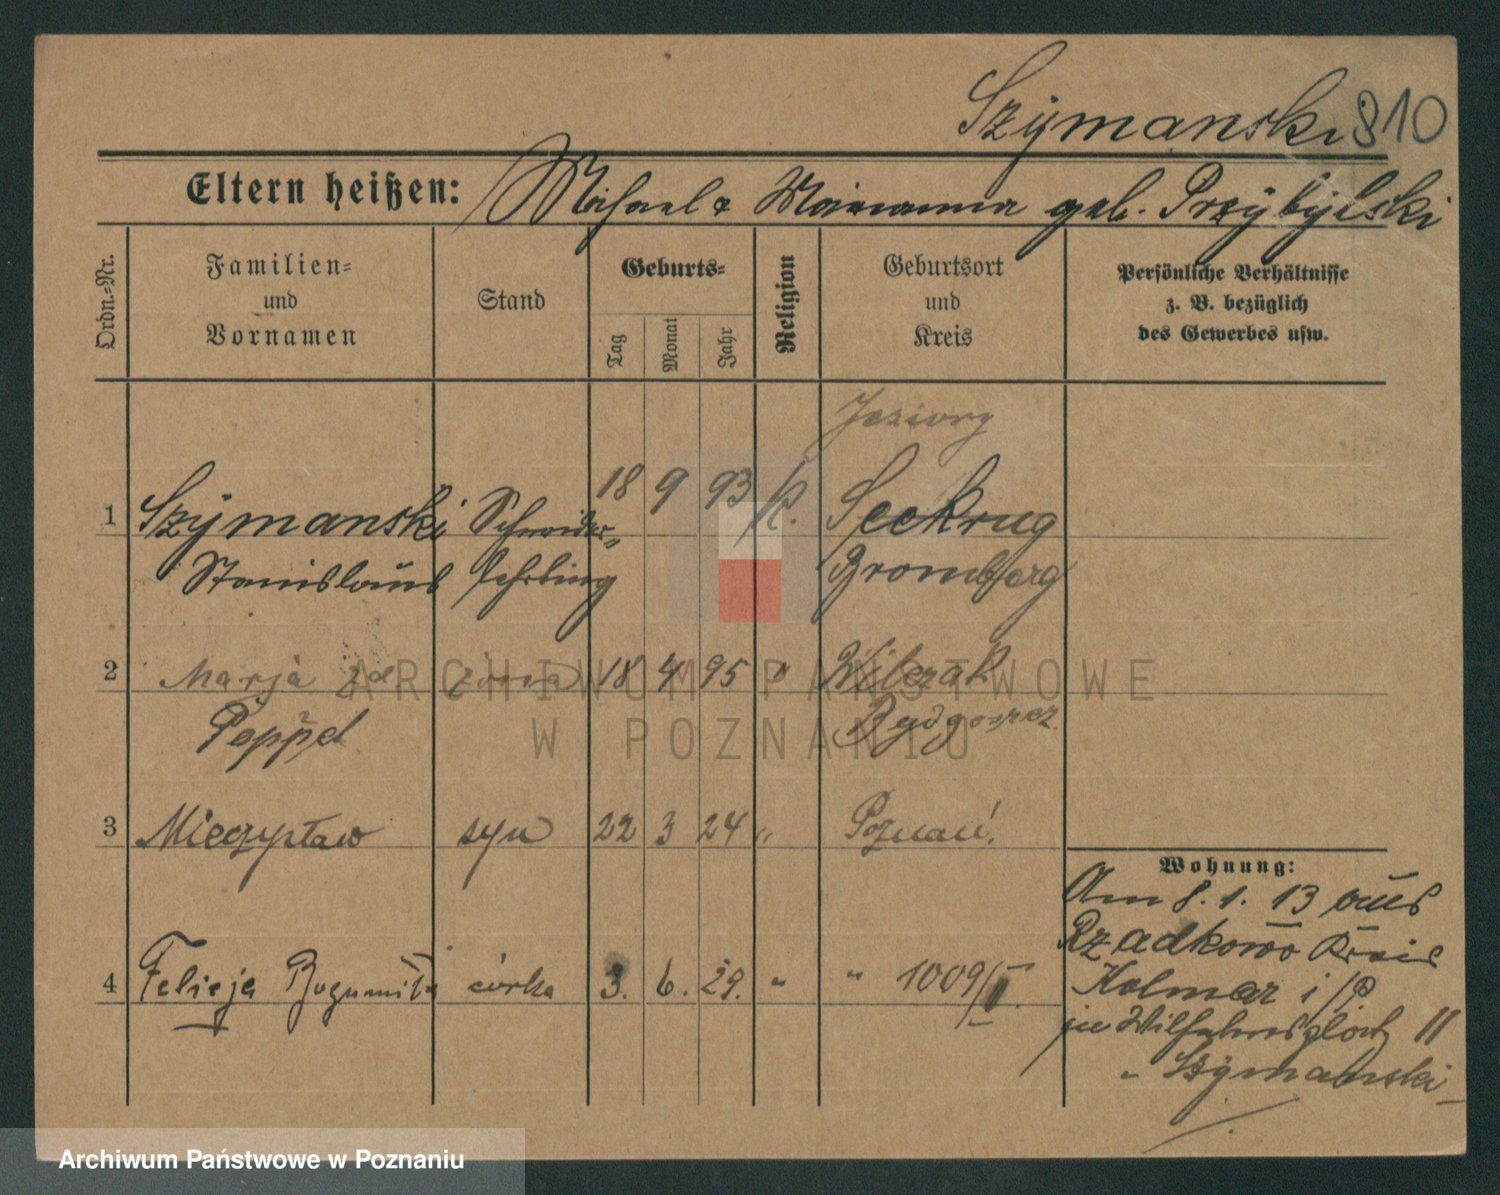 Szymanski 810
Eltern heißen: Michael & Marianna geb. Przybylski
Ordn.-Nr.
Familien- und Vornamen
Stand
Geburts-
Tag
Monat
Jahr
Religion
Geburtsort und Kreis
Persönliche Verhältnisse
z. B. bezüglich
des Gewerbes usw.
Jeziory
1 Szymanski Schneider- 18 9 93 k. Seekrug
Stanislaus lehrling Bromberg
2 Marja żona 18 4 95 " Wilczak
Peppel Bydgoszcz
3 Mieczysław syn 22 3 24 " Poznań
4 Felicja Bogumiła córka 3. 6. 29. " " 1009/II
Wohnung:
Am 8. 1. 13 aus
Rzadkowo Kreis
Kolmar i/P
Wilhelmsplatz 11
" Szymanski
ARCHIWUM PAŃSTWOWE
W POZNANIU
Archiwum Państwowe w Poznaniu